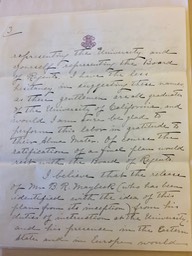 3.
representing the University, and
yourself representing the Board
of Regents. I have the less
hesitancy in suggesting these names
as these gentlemen are all graduates
of the University of California, and
would I am sure be glad to
perform this labor in gratitude to
their Alma Mater. Of course, the
satisfaction of any final plans would
rest with the Board of Regents.
I believe that the release
of Mr B. R. Maybeck (who has been
identified with the idea of this
plan from its inception) from his
duties of instruction at the University
and his presence in the Eastern
States and in Europe would in